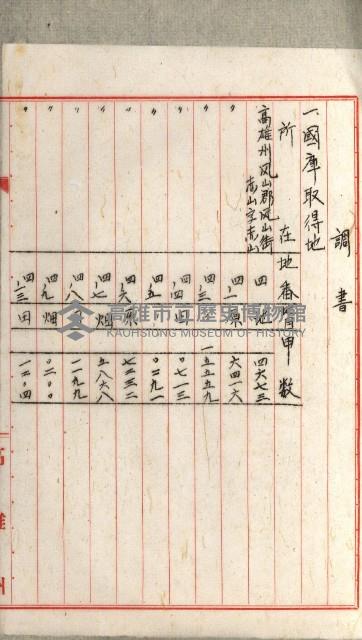 調書
一、國庫取得地
所在 地番 目 甲数
高雄州凤山郡凤山街
赤山字赤山
四 池 四六七三
〃 四ノ一 原 六四一六
〃 四ノ三 一五五五九
〃 四ノ四 田 〇七一三
〃 四ノ五 〇二九一
〃 四ノ六 原 七二三二
〃 四ノ七 畑 五八六八
〃 四ノ八 一一九九
〃 四ノ九 畑 〇二〇〇
〃 四ノ一三 田 一二〇四
高雄州
高雄市立歷史博物館
KAOHSIUNG MUSEUM OF HISTORY